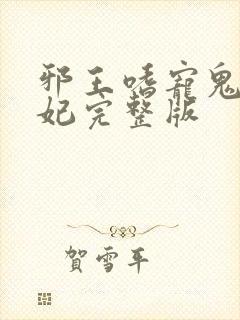 邪王嗜寵鬼
妃完整版
賀雪平